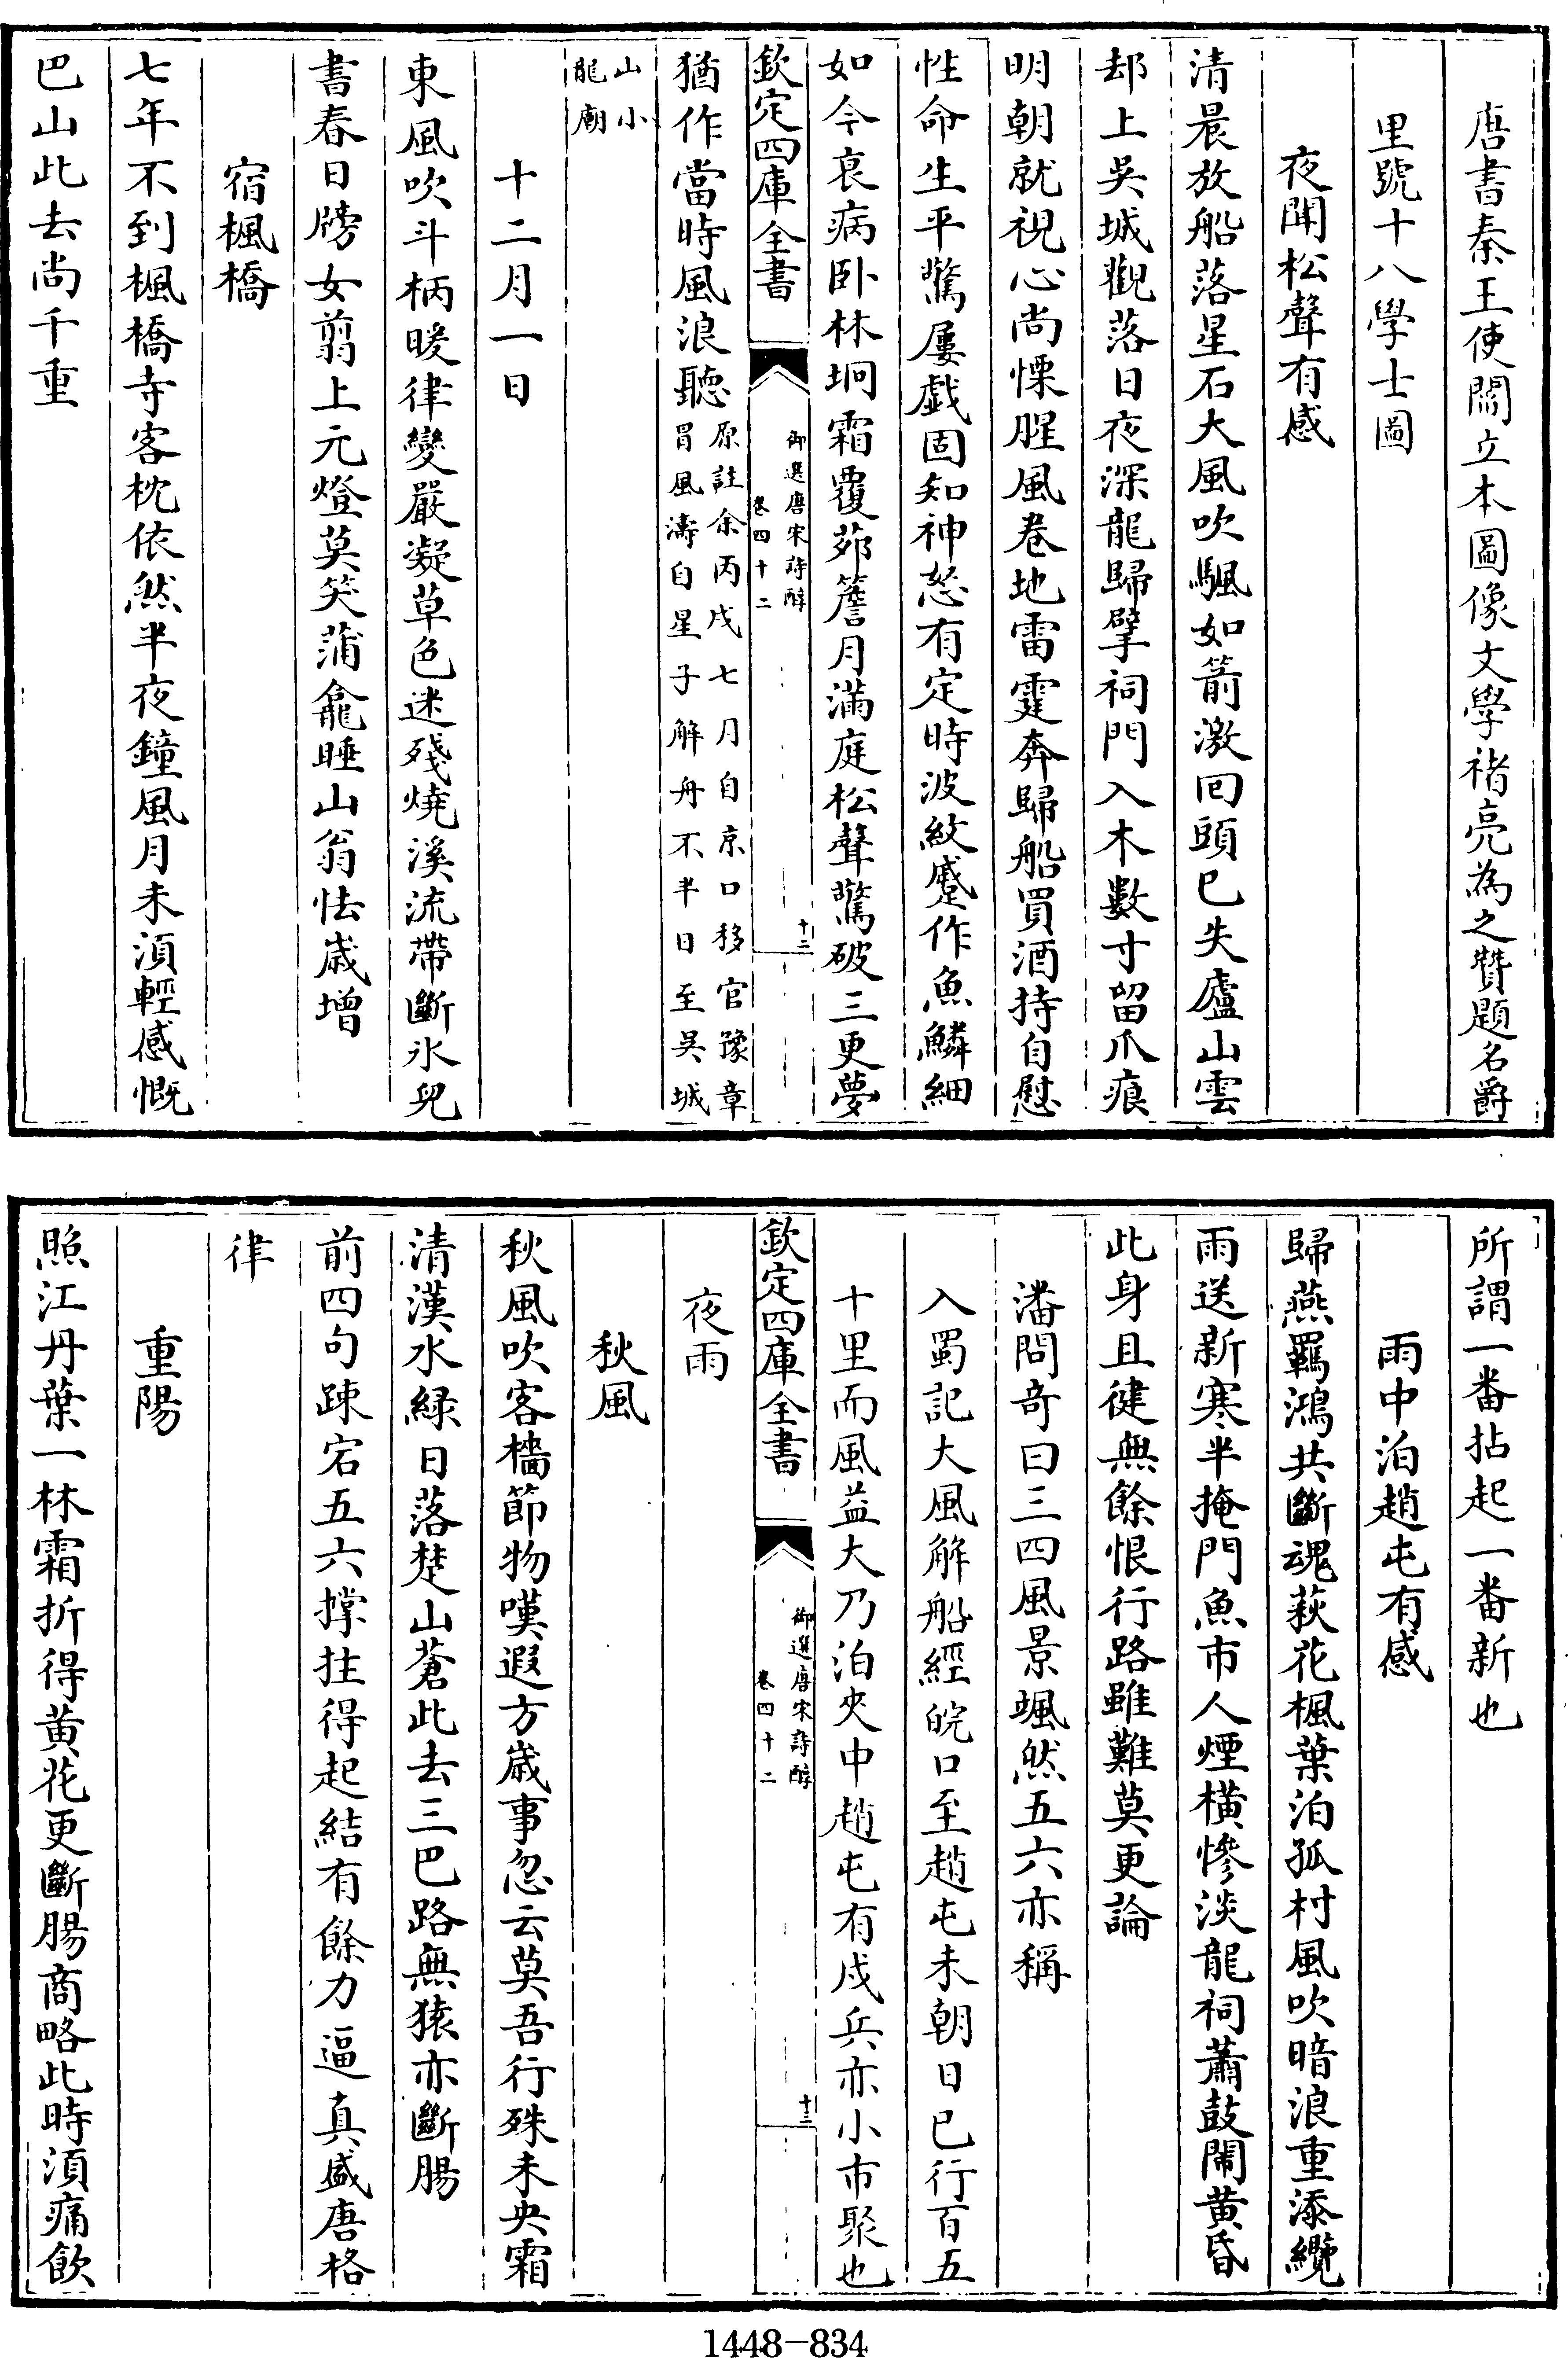 唐書秦王使閻立本圖像文學褚亮為之贊題名爵
里號十八學士圖
夜聞松聲有感
清晨放船落星石大風吹颿如箭激回頭已失廬山雲
却上吳城觀落日夜深龍歸擘祠門入木數寸留爪痕
明朝就視心尚慄腥風卷地雷霆奔歸船買酒持自慰
性命生平驚屢戲固知神怒有定時波紋蹙作魚鱗細
如今衰病卧林坰霜覆茆簷月滿庭松聲驚破三更夢
欽定四庫全書
御選唐宋詩醇
卷四十二
十二
猶作當時風浪聽
原註余丙戌七月自京口移官豫章
冒風濤自星子解舟不半日至吳城
山小
龍廟
十二月一日
東風吹斗柄暖律變嚴凝草色迷殘燒溪流帶斷冰兒
書春日牓女翦上元燈莫笑蒲龕睡山翁怯歲增
宿楓橋
七年不到楓橋寺客枕依然半夜鐘風月未須輕感慨
巴山此去尚千重
所謂一番拈起一番新也
雨中泊趙屯有感
歸燕羈鴻共斷魂荻花楓葉泊孤村風吹暗浪重添纜
雨送新寒半掩門魚市人煙橫慘淡龍祠蕭鼓鬧黃昏
此身且健無餘恨行路雖難莫更論
潘問奇曰三四風景颯然五六亦稱
入蜀記大風解船經皖口至趙屯未朝日已行百五
十里而風益大乃泊夾中趙屯有戍兵亦小市聚也
欽定四庫全書
御選唐宋詩醇
卷四十二
十三
夜雨
秋風
秋風吹客檣節物嘆遐方歲事忽云莫吾行殊未央霜
清漢水綠日落楚山蒼此去三巴路無猿亦斷腸
前四句疎宕五六撑拄得起結有餘力逼真盛唐格
律
重陽
照江丹葉一林霜折得黃花更斷腸商略此時須痛飲
1448-834